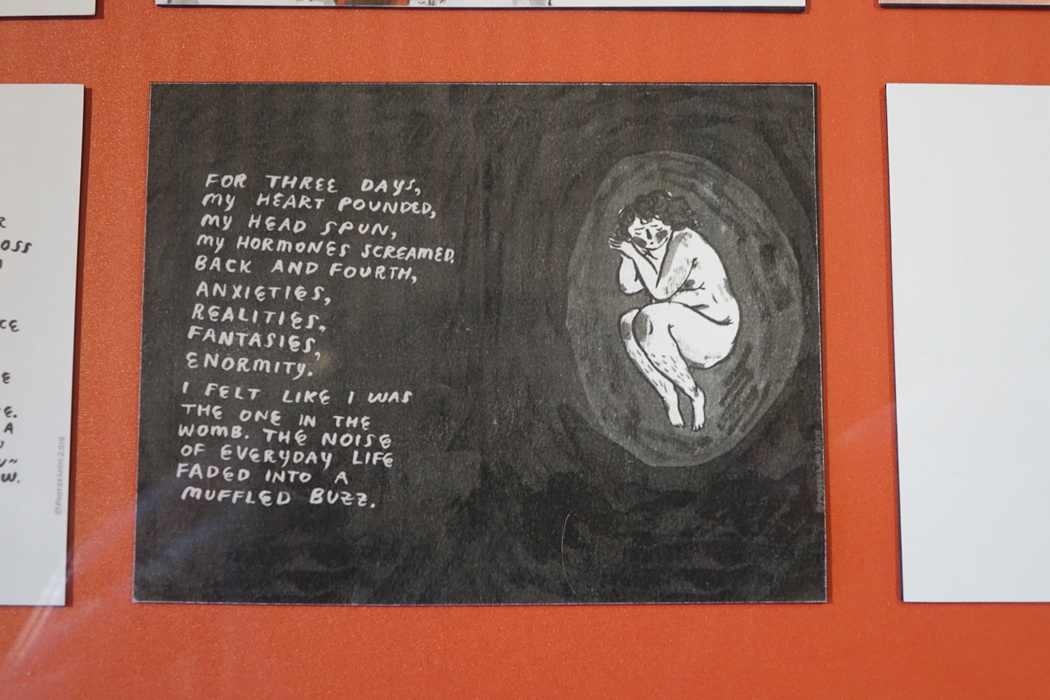 FOR THREE DAYS,
MY HEART POUNDED,
MY HEAD SPUN,
MY HORMONES SCREAMED.
BACK AND FOURTH,
ANXIETIES,
REALITIES,
FANTASIES,
ENORMITY.
I FELT LIKE I WAS
THE ONE IN THE
WOMB. THE NOISE
OF EVERYDAY LIFE
FADED INTO A
MUFFLED BUZZ.